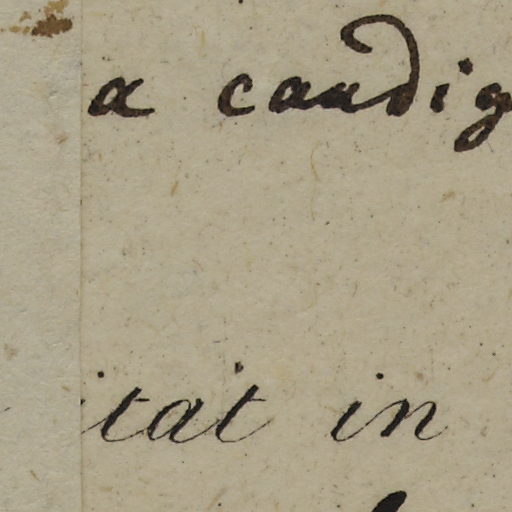 a caudig
itat in